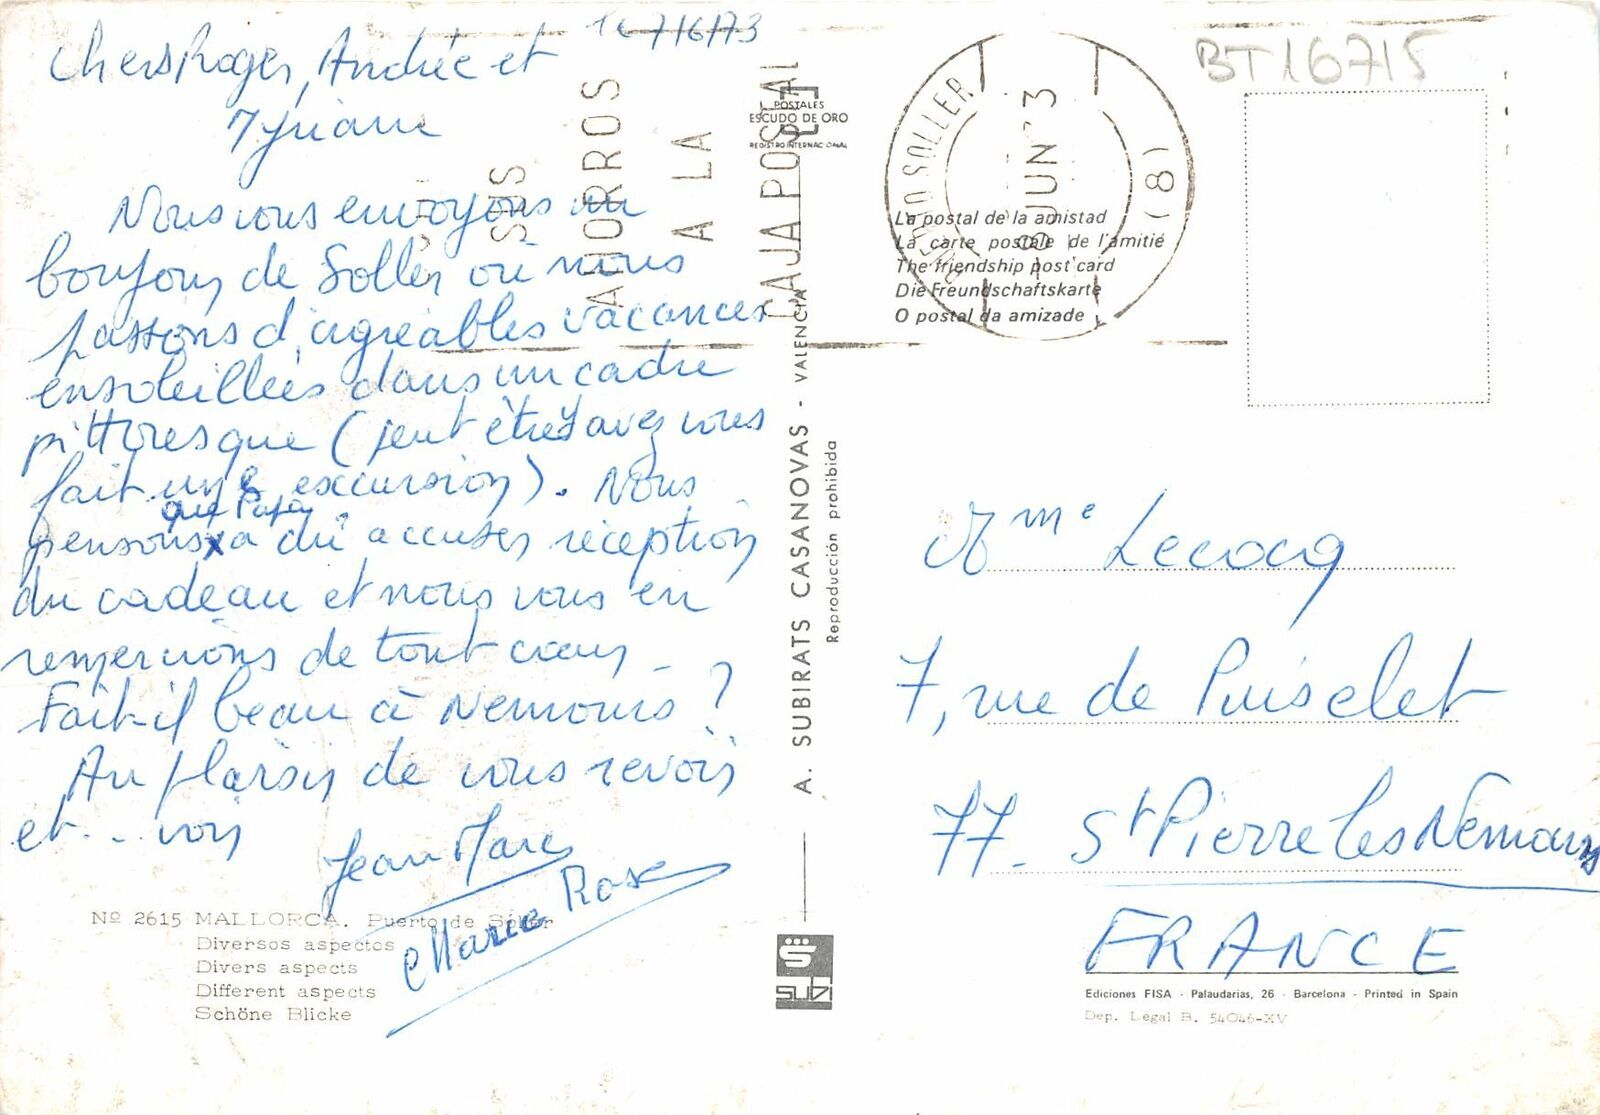 16/7/6/73
Chers Roger, Andrée et
Myriam
Nous vous envoyons un
bonjour de Soller où nous
passons d'agréables vacances
ensoleillées dans un cadre
pittoresque (peut être y avez vous
fait une excursion). Nous
pensons que Papa a dû accuser réception
du cadeau et nous vous en
remercions de tout coeur.
Fait-il beau à Nemours ?
Au plaisir de vous revoir
et... voir
Jean Marc
Marie Rose
Nº 2615 MALLORCA. Puerto de Sóller
Diversos aspectos
Divers aspects
Different aspects
Schöne Blicke
SUS
AHORROS
A LA
CAJA POSTAL
POSTALES
ESCUDO DE ORO
REGISTRO INTERNACIONAL
A. SUBIRATS CASANOVAS - VALENCIA
Reproducción prohibida
subi
SOLLER
JUN 73
(8)
BT16715
La postal de la amistad
La carte postale de l'amitié
The friendship post card
Die Freundschaftskarte
O postal da amizade
Mme Lecocq
7, rue de Puiselet
77 - St Pierre les Nemours
FRANCE
Ediciones FISA - Palaudarias, 26 - Barcelona - Printed in Spain
Dep. Legal B. 54046-XV